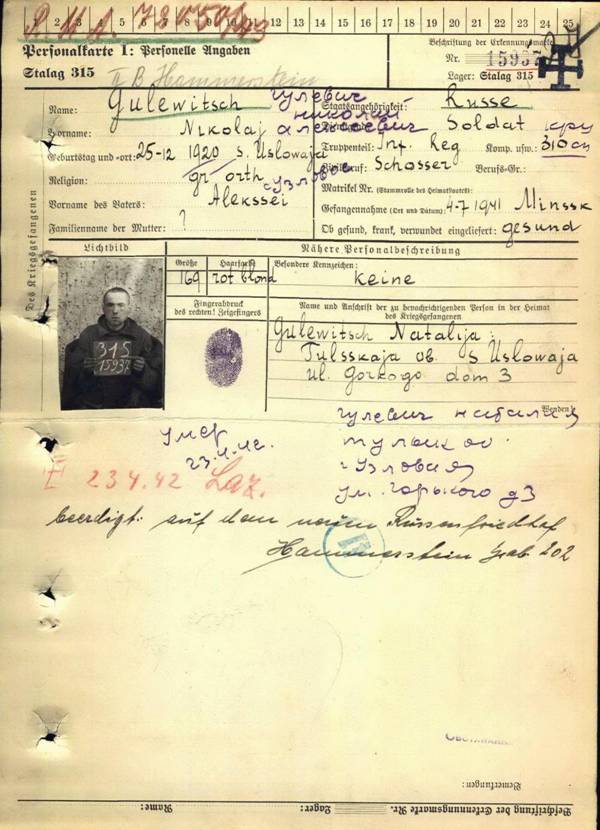 1 2 3 4 5 6 7 8 9 10 11 12 13 14 15 16 17 18 19 20 21 22 23 24 25
Personalkarte I: Personelle Angaben
Beschriftung der Erkennungsmarke
Stalag 315 II B Hammerstein
Nr. 15937
Lager: Stalag 315
Des Kriegsgefangenen
Name: Gulewitsch гулевич
Staatsangehörigkeit: Russe
Vorname: Nikolaj николай алексеевич
Soldat
Geburtstag und -ort: 25-12 1920 s. Uslowaja
Truppenteil: Inf. Reg Komp. usw.: 310 сп
с узловое
Zivilberuf: Schosser Berufs-Gr.:
Religion: gr orth
Matrikel Nr. (Stammrolle des Heimatstaates):
Vorname des Vaters: Alekssei
Gefangennahme (Ort und Datum): 4-7 1941 Minssk
Familienname der Mutter: ?
Ob gesund, krank, verwundet eingeliefert: gesund
Lichtbild
Nähere Personalbeschreibung
Größe Haarfarbe Besondere Kennzeichen:
169 rot blond keine
Fingerabdruck
des rechten! Zeigefingers
Name und Anschrift der zu benachrichtigenden Person in der Heimat
des Kriegsgefangenen
315
15937
Gulewitsch Natalija
Tulsskaja ob. s Uslowaja
ul. Gorkogo dom 3
Wenden!
гулевич наталия
умер
23.4.42.
тульск об.
с узловая
ул. горького д 3
23.4.42 Laz.
beerdigt: auf dem neuen Russenfriedhof
Hammerstein Grab 202
Bemerkungen:
Beschriftung der Erkennungsmarke Nr. Lager: Name: